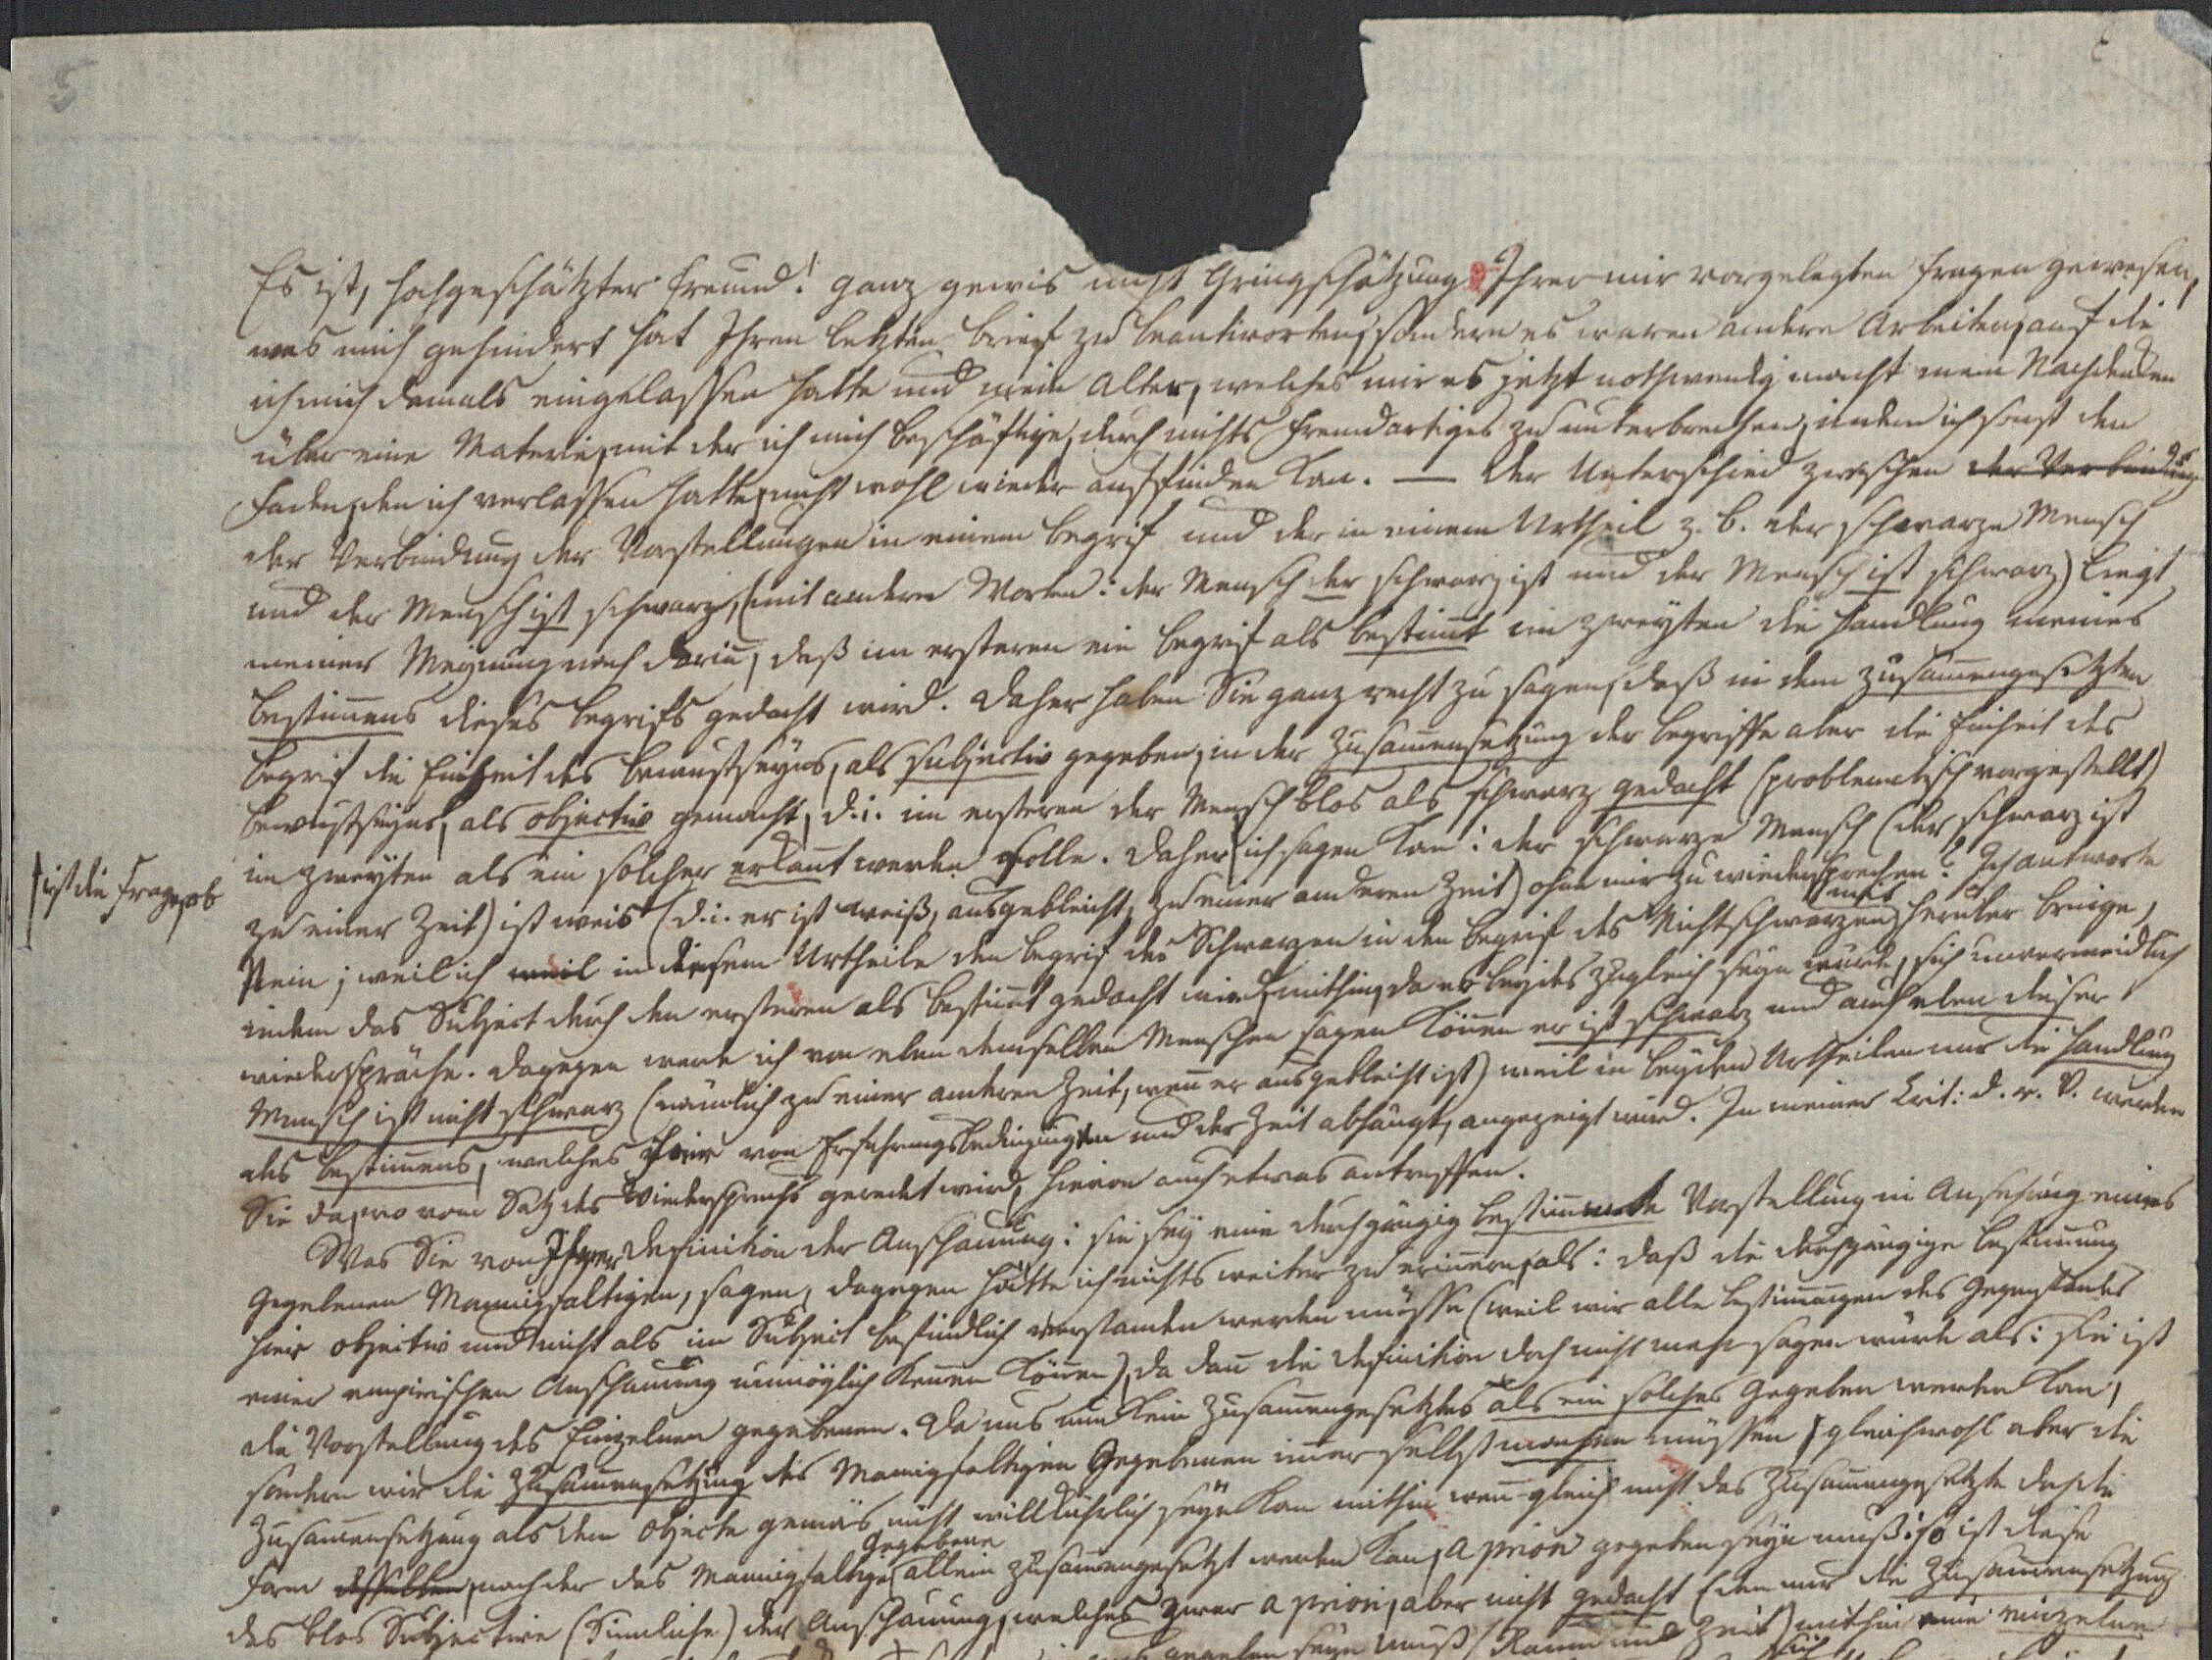 5
Es ist, Hochgeschätzter Freund! ganz gewis nicht Gringschätzung Ihrer mir vorgelegten Fragen gewesen,
was mich gehindert hat Ihren letzten Brief zu beantworten, sondern es waren andere Arbeiten, auf die
ich mich damals eingelassen hatte und mein Alter, welches mir es jetzt nothwendig macht mein Nachdenken
über eine Materie, mit der ich mich beschäftige, durch nichts Fremdartiges zu unterbrechen, indem ich sonst den
Faden, den ich verlassen hatte, nicht wohl wieder auffinden kan. — Der Unterschied zwischen der Verbindung
der Verbindung der Vorstellungen in einem Begrif und der in einem Urtheil z. B. der schwarze Mensch
und der Mensch ist schwarz, (mit andern Worten: der Mensch der schwarz ist und der Mensch ist schwarz) liegt
meiner Meynung nach darin, daß im ersteren ein Begrif als bestimt im zweyten die Handlung meines
Bestimmens dieses Begrifs gedacht wird. Daher haben Sie ganz recht zu sagen, daß in dem zusammengesetzten
Begrif die Einheit des Bewustseyns, als subjectiv gegeben, in der Zusammensetzung der Begriffe aber die Einheit des
Bewustseyns, als objectiv gemacht, d. i. im ersteren der Mensch blos als schwarz gedacht (problematisch vorgestellt)
im zweyten als ein solcher erkant werden solle. Daher ich sagen kan: der schwarze Mensch (der schwarz ist
ist die Frage, ob
zu einer Zeit) ist weis (d. i. er ist weiß, ausgebleicht, zu einer anderen Zeit) ohne mir zu wiedersprechen? Ich antworte
Nein; weil ich weil in diesem Urtheile den Begrif des Schwarzen in den Begrif des Nichtschwarzen mit herüber bringe,
indem das Subject durch den ersteren als bestimt gedacht wird, mithin, da es beydes zugleich seyn würde, sich unvermeidlich
wiederspräche. Dagegen werde ich von eben demselben Menschen sagen können er ist schwarz und auch eben dieser
Mensch ist nicht schwarz (nämlich zu einer anderen Zeit, wenn er ausgebleicht ist) weil in beyden Urtheilen nur die Handlung
des Bestimmens, welches hier von Erfahrungsbedingungen und der Zeit abhängt, angezeigt wird. In meiner Crit: d. r. V. werden
Sie da, wo vom Satz des Wiederspruchs geredet wird, hievon auch etwas antreffen.
Was Sie von Ihrer Definition der Anschauung: sie sey eine durchgängig bestimmte Vorstellung in Ansehung eines
Gegebenen Mannigfaltigen, sagen, dagegen hätte ich nichts weiter zu erinnern, als: daß die durchgängige Bestimmung
hier objectiv und nicht als im Subject befindlich verstanden werden müsse (weil wir alle Bestimmungen des Gegenstandes
einer empirischen Anschauung unmöglich kennen können), da dann die Definition doch nicht mehr sagen würde als: sie ist
die Vorstellung des Einzelnen gegebenen. Da uns nun kein Zusammengesetztes als ein solches Gegeben werden kan,
sondern wir die Zusammensetzung des Mannigfaltigen Gegebenen immer selbst machen müssen, gleichwohl aber die
Zusammensetzung als dem Objecte gemäs nicht willkührlich seyn kan mithin wenn gleich nicht das Zusammengesetzte doch die
Form desselben, nach der das Mannigfaltige Gegebene allein zusammengesetzt werden kan, a priori gegeben seyn muß: so ist diese
das blos Subjective (Sinnliche) der Anschauung, welches zwar a priori, aber nicht gedacht (denn nur die Zusammensetzung
gegeben seyn muß (Raum und Zeit) mithin eine einzelne